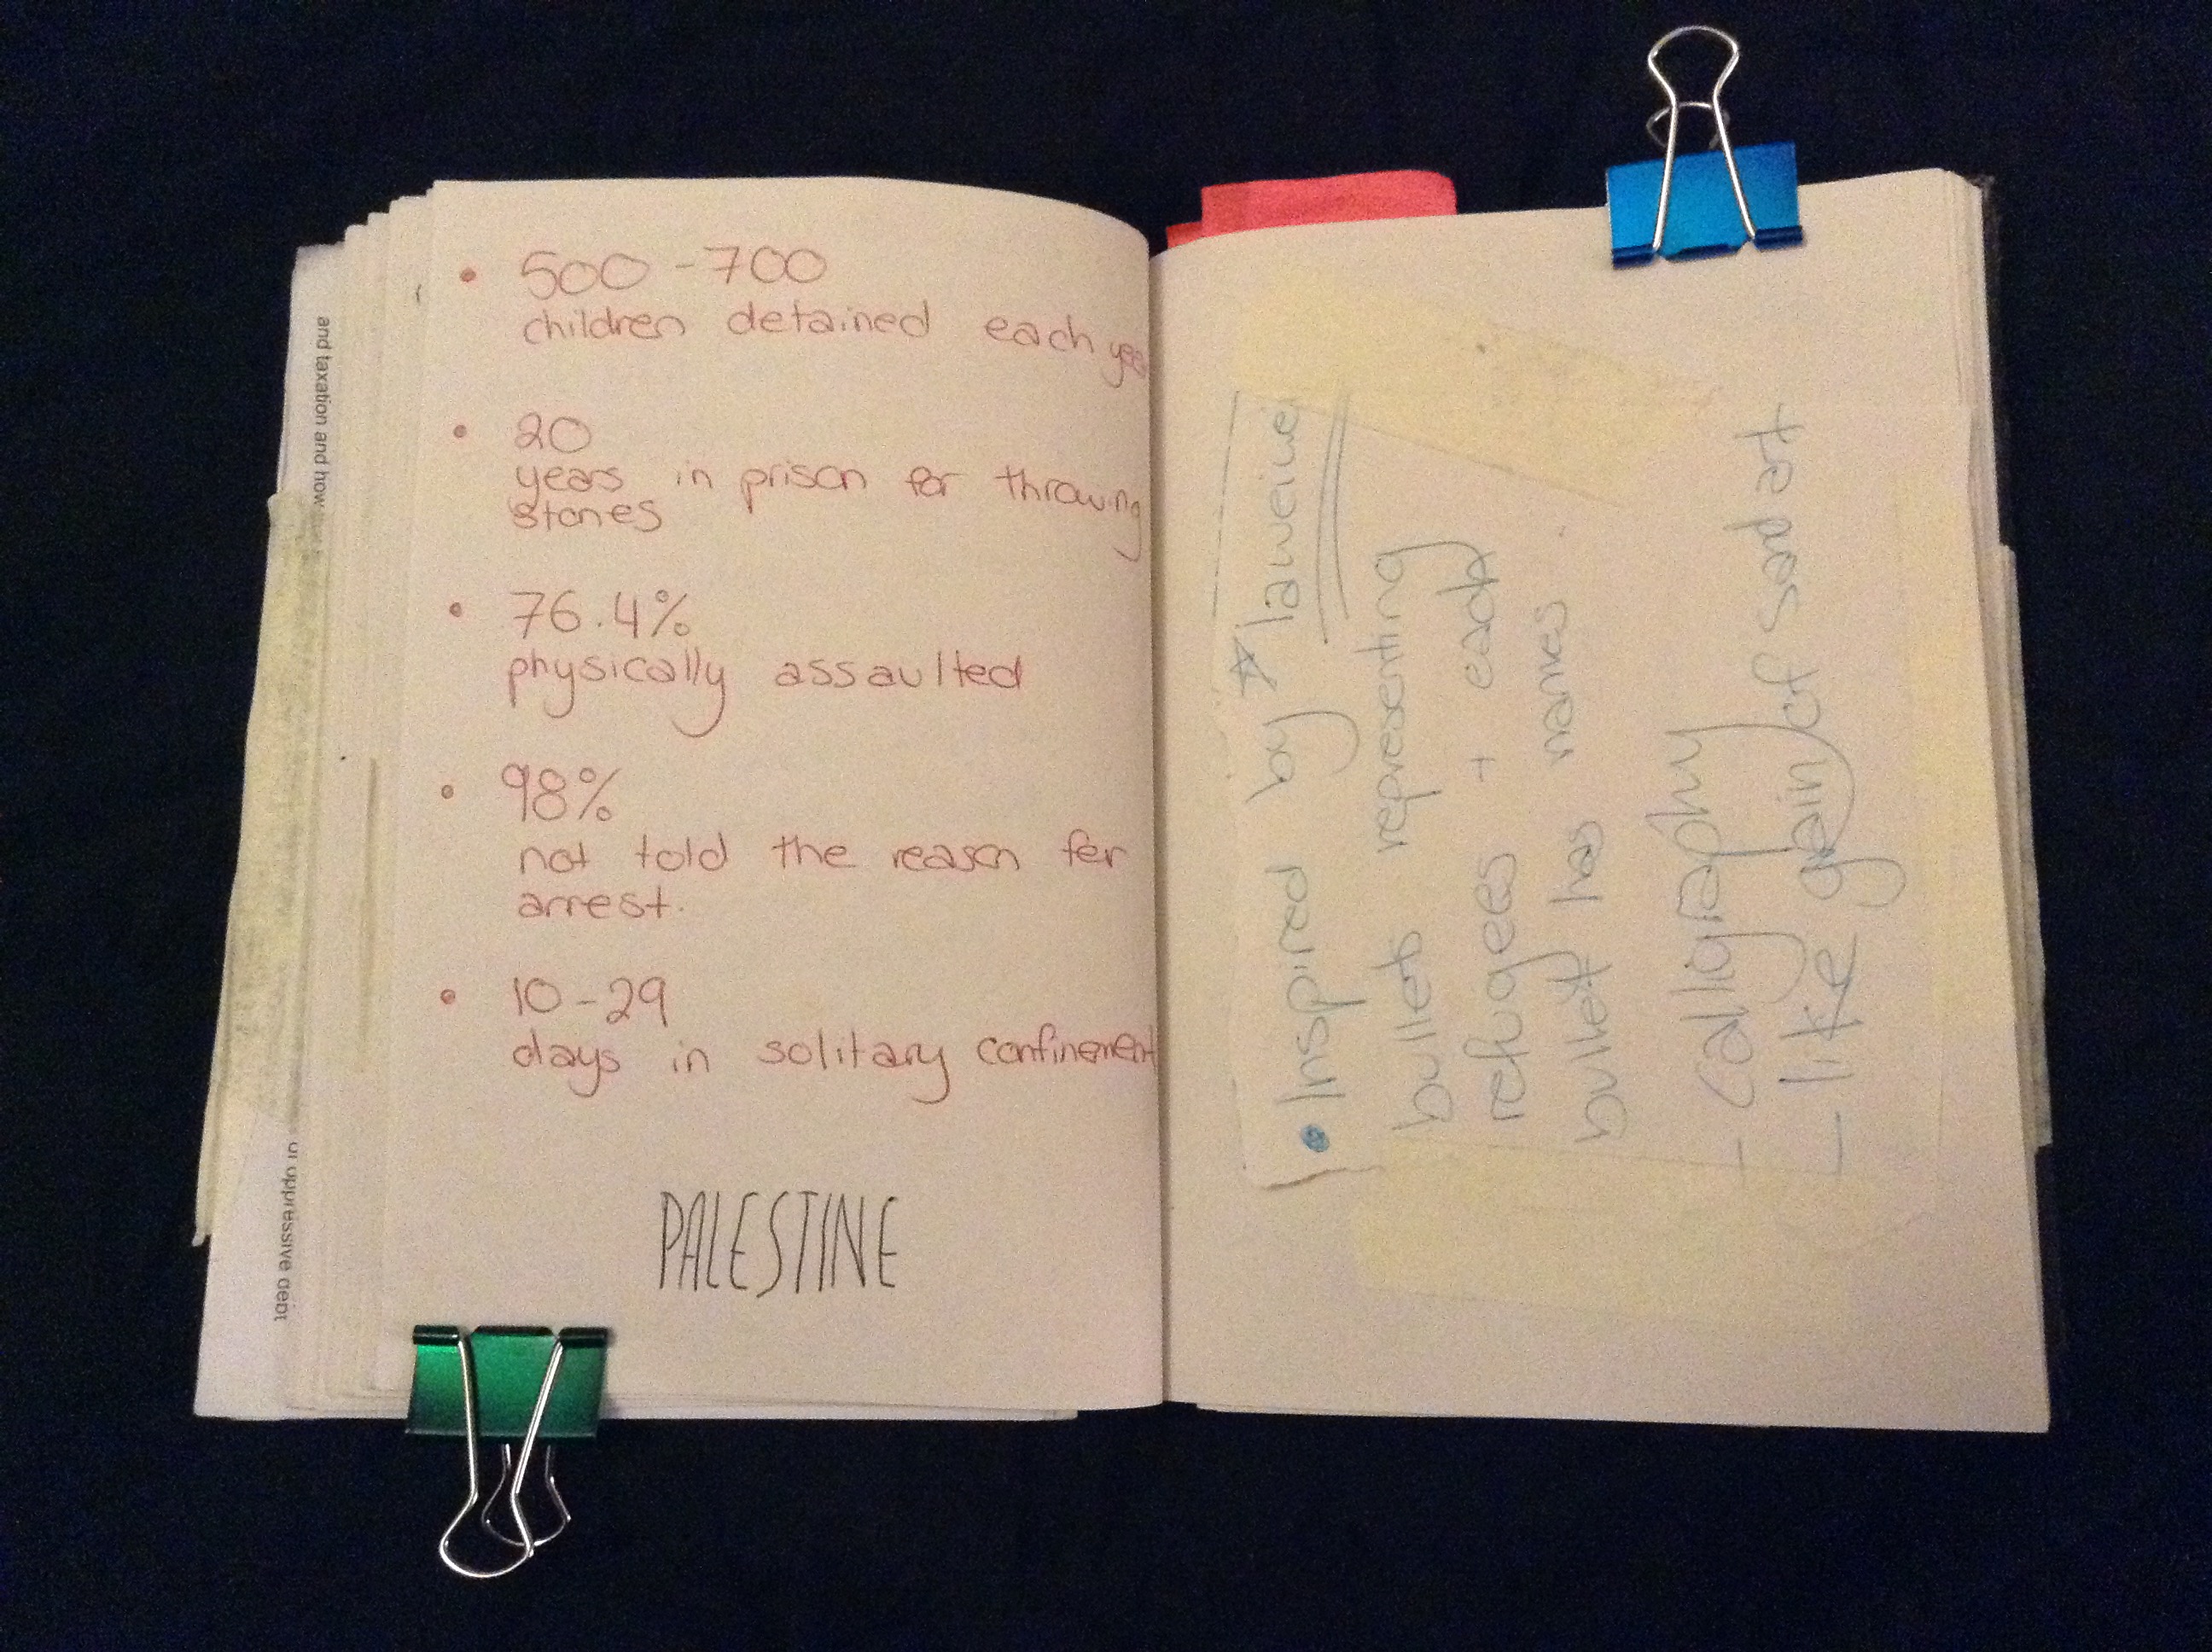 and taxation and how
of oppressive debt
• 500-700
children detained each yea
• 20
years in prison for throwing
stones
• 76.4%
physically assaulted
• 98%
not told the reason for
arrest.
• 10-29
days in solitary confinement
PALESTINE
• Inspired by ☆
bullets representing
refugees + each
bullet has names
- calligraphy
- like grain of sand art